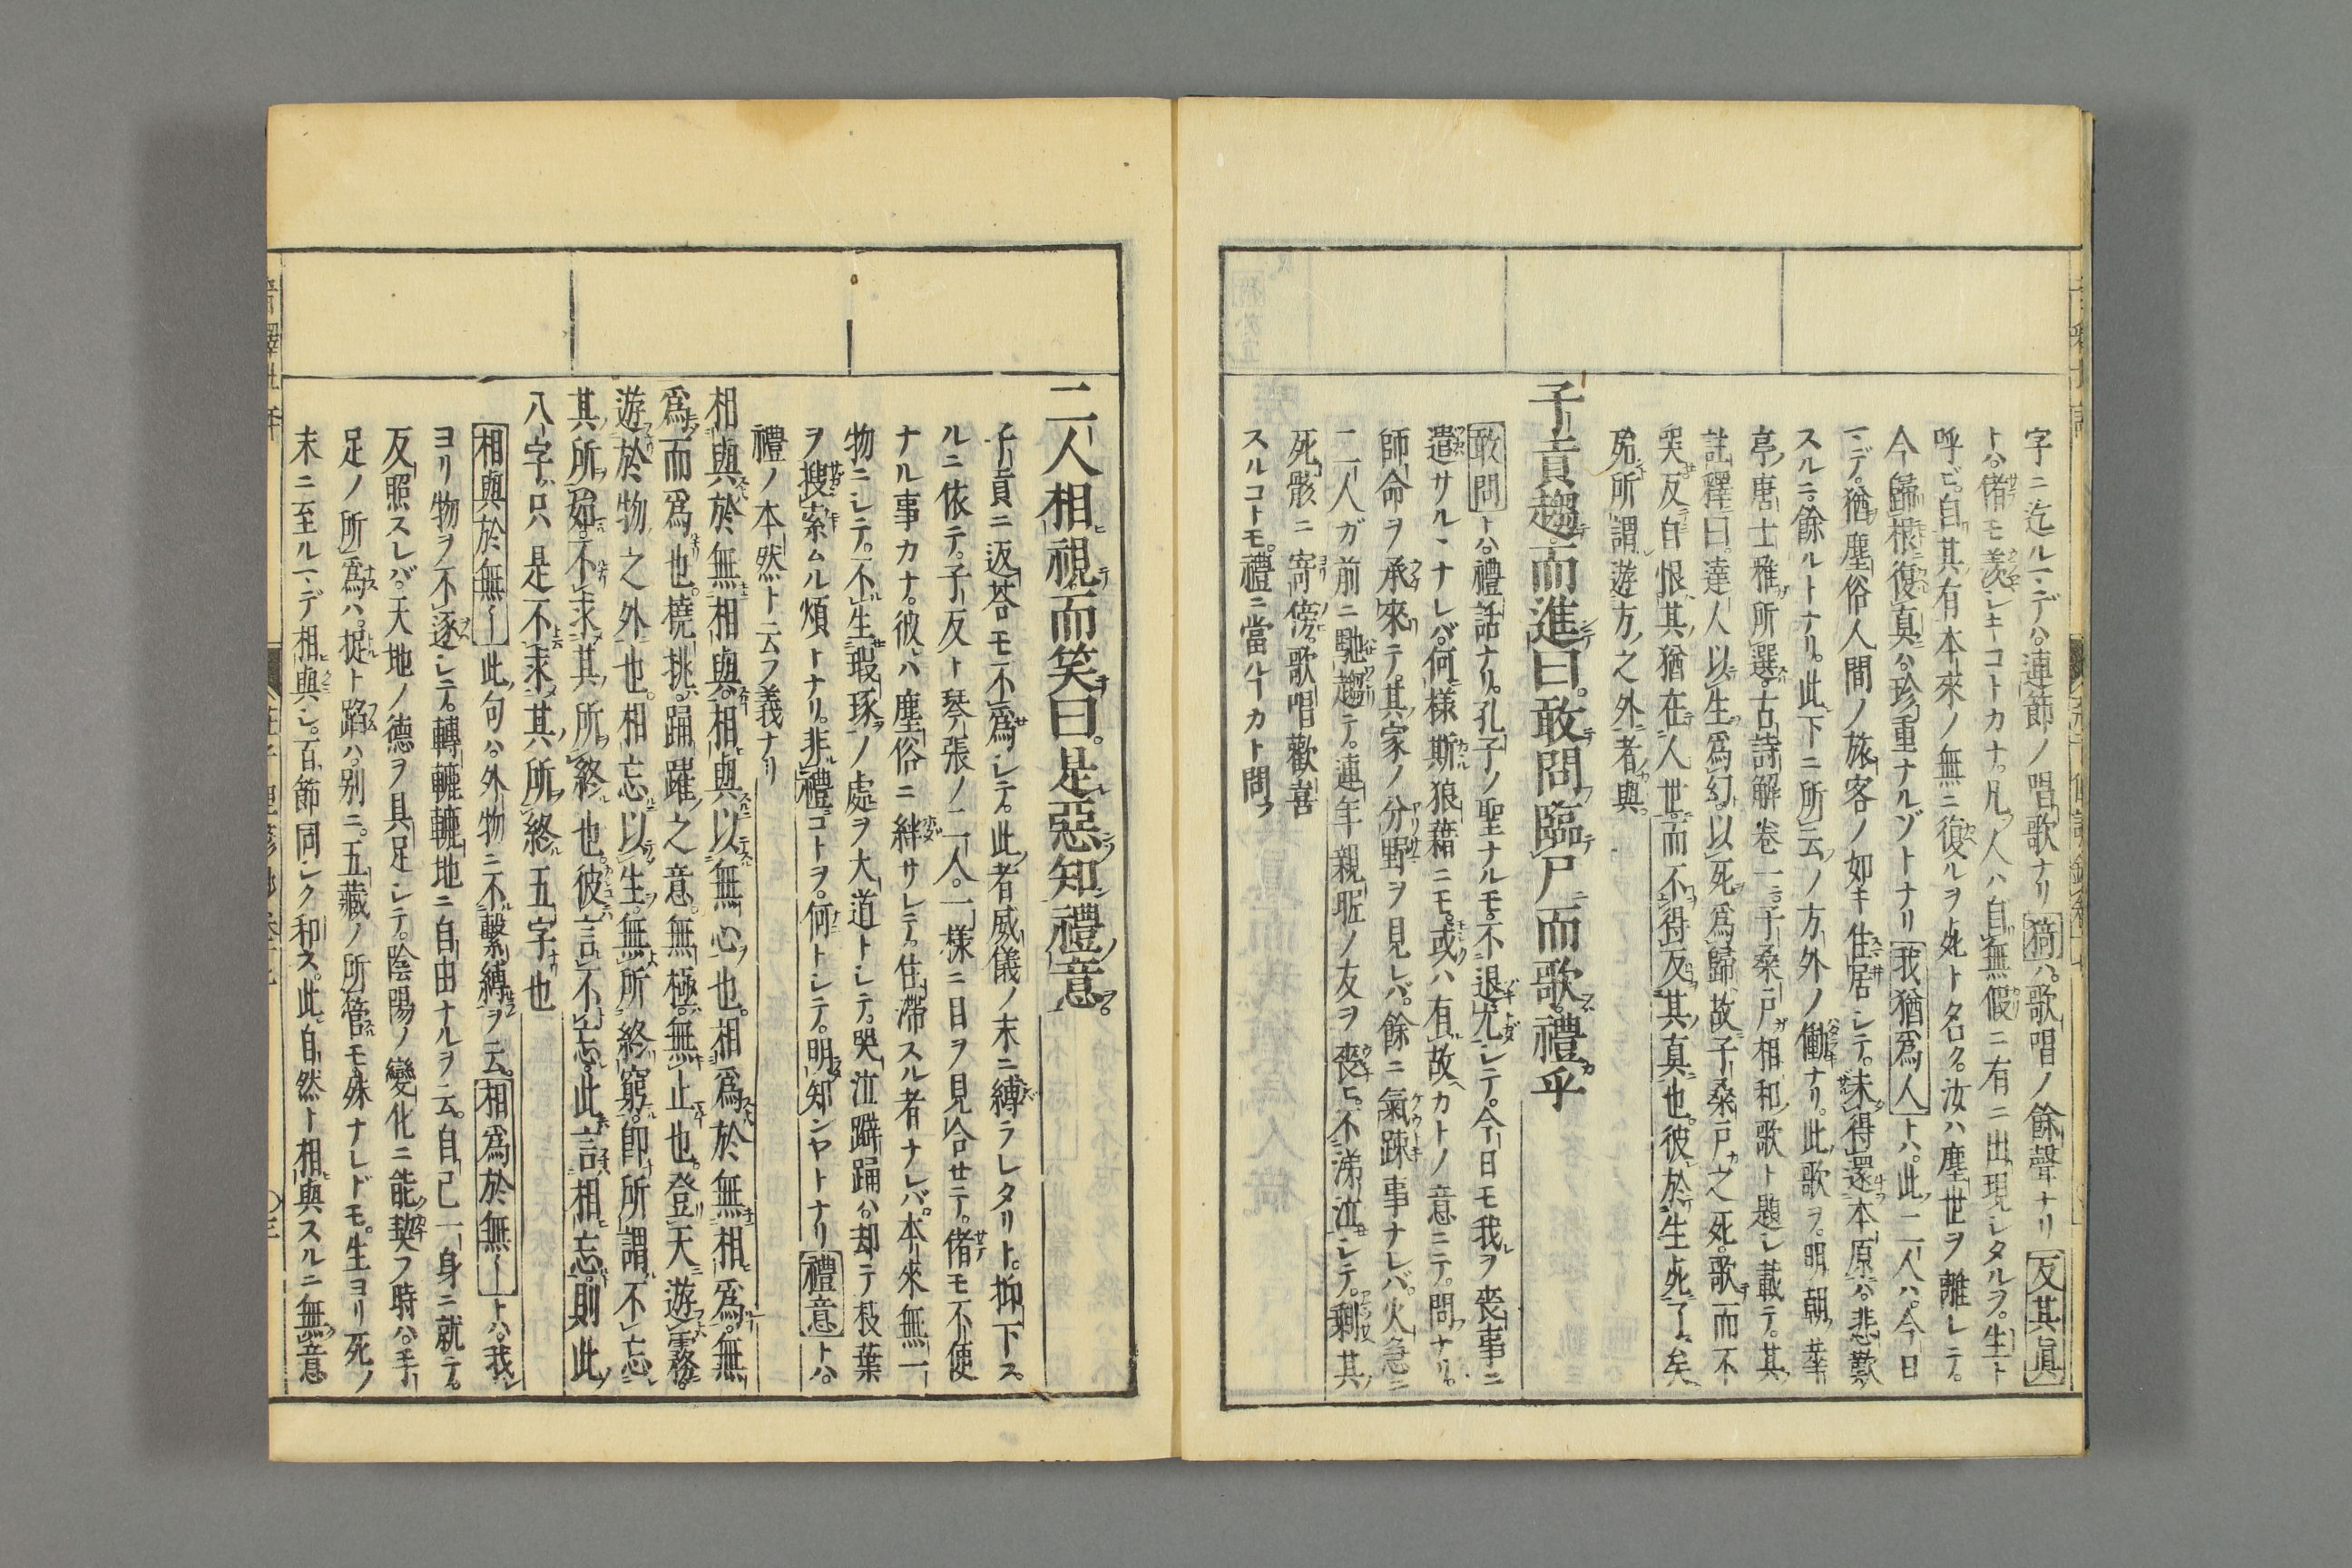 字ニ迄ル一デハ。連節ノ唱歌ナリ猗ハ。歌唱ノ餘聲ナリ反其真
トハ。偖モ羨シキコトカナ。凡人ハ自無假ニ有ニ出現シタルヲ。生ト
呼ビ。自其有本來ノ無ニ復ルヲ死ト名ク。汝ハ塵世ヲ離レテ。
今歸根復真ハ珍重ナルゾトナリ我猶爲人トハ。此二人ハ。今日
マデ。猶塵俗人間ノ旅客ノ如キ住居シテ。未得還本原ハ。悲歎
スルニ。餘ルトナリ。此下ニ所云ノ方外ノ働ナリ。此歌ヲ。明朝
亭唐士雅所選。古詩解卷一。子桑戸相和歌ト題シ載テ。其
註釋曰。達人以生爲幻。以死爲歸。故子桑戸之死。歌而不
哭。反自恨其猶在人世。而不得反其真也。彼於生死了矣。
殆所謂遊方之外者與。
子貢趨而進曰。敢問臨尸而歌。禮乎
敢問トハ。禮話ナリ。孔子ノ聖ナルモ。不退尤シテ。今日モ我ヲ喪事ニ
遣サルヽナレバ。何樣斯狼藉ニモ。或ハ有故カトノ意ニテ。問ナリ。
師命ヲ承來テ。其家ノ分野ヲ見レバ。餘ニ氣疎事ナレバ。火急ニ
二人ガ前ニ馳趨テ。連年親昵ノ友ヲ喪ヒ。不涕泣シテ。剩其
死骸ニ寄傍。歌唱歡喜
スルコトモ。禮ニ當ルヿカト問フ
二人相視而笑曰。是惡知禮意。
子貢ニ返荅モ不爲シテ。此者威儀ノ末ニ縛ラレタリト。抑下ス
ルニ依テ。子反ト琴張ノ二人。一樣ニ目ヲ見合セテ。偖モ不便
ナル事カナ。彼ハ塵俗ニ絆サレテ。住滯スル者ナレバ。本來無一
物ニシテ。不生瑕琢ノ處ヲ大道トシテ。哭泣躃踊ハ。却テ枝葉
ヲ搜索ムル煩トナリ。非禮コトヲ。何トシテ。明知ンヤトナリ禮意トハ。
禮ノ本然ト云フ義ナリ
相與於無相與。相與以無心也。相爲於無相爲。無
爲而爲也。橈挑。踊躍之意。無極。無止也。登天遊霧。
遊於物之外也。相忘以生。無所終窮。即所謂不忘
其所始。不求其所終也。彼言不忘。此言相忘。則此
八字。只是不求其所終五字也
相與於無〳〵此句ハ。外物ニ不繫縛ヲ云。相爲於無〳〵トハ。我
ヨリ物ヲ不逐シテ。轉轆轆地ニ自由ナルヲ云。自己一身ニ就テ。
反照スレバ。天地ノ德ヲ具足シテ。陰陽ノ變化ニ能契フ時ハ。手
足ノ所爲ハ。捉ト蹈ハ。別ニ。五藏ノ所管モ殊ナレドモ。生ヨリ死ノ
末ニ至ルマデ相與シ。百節同シク和ス。此自然ト相與スルニ無意